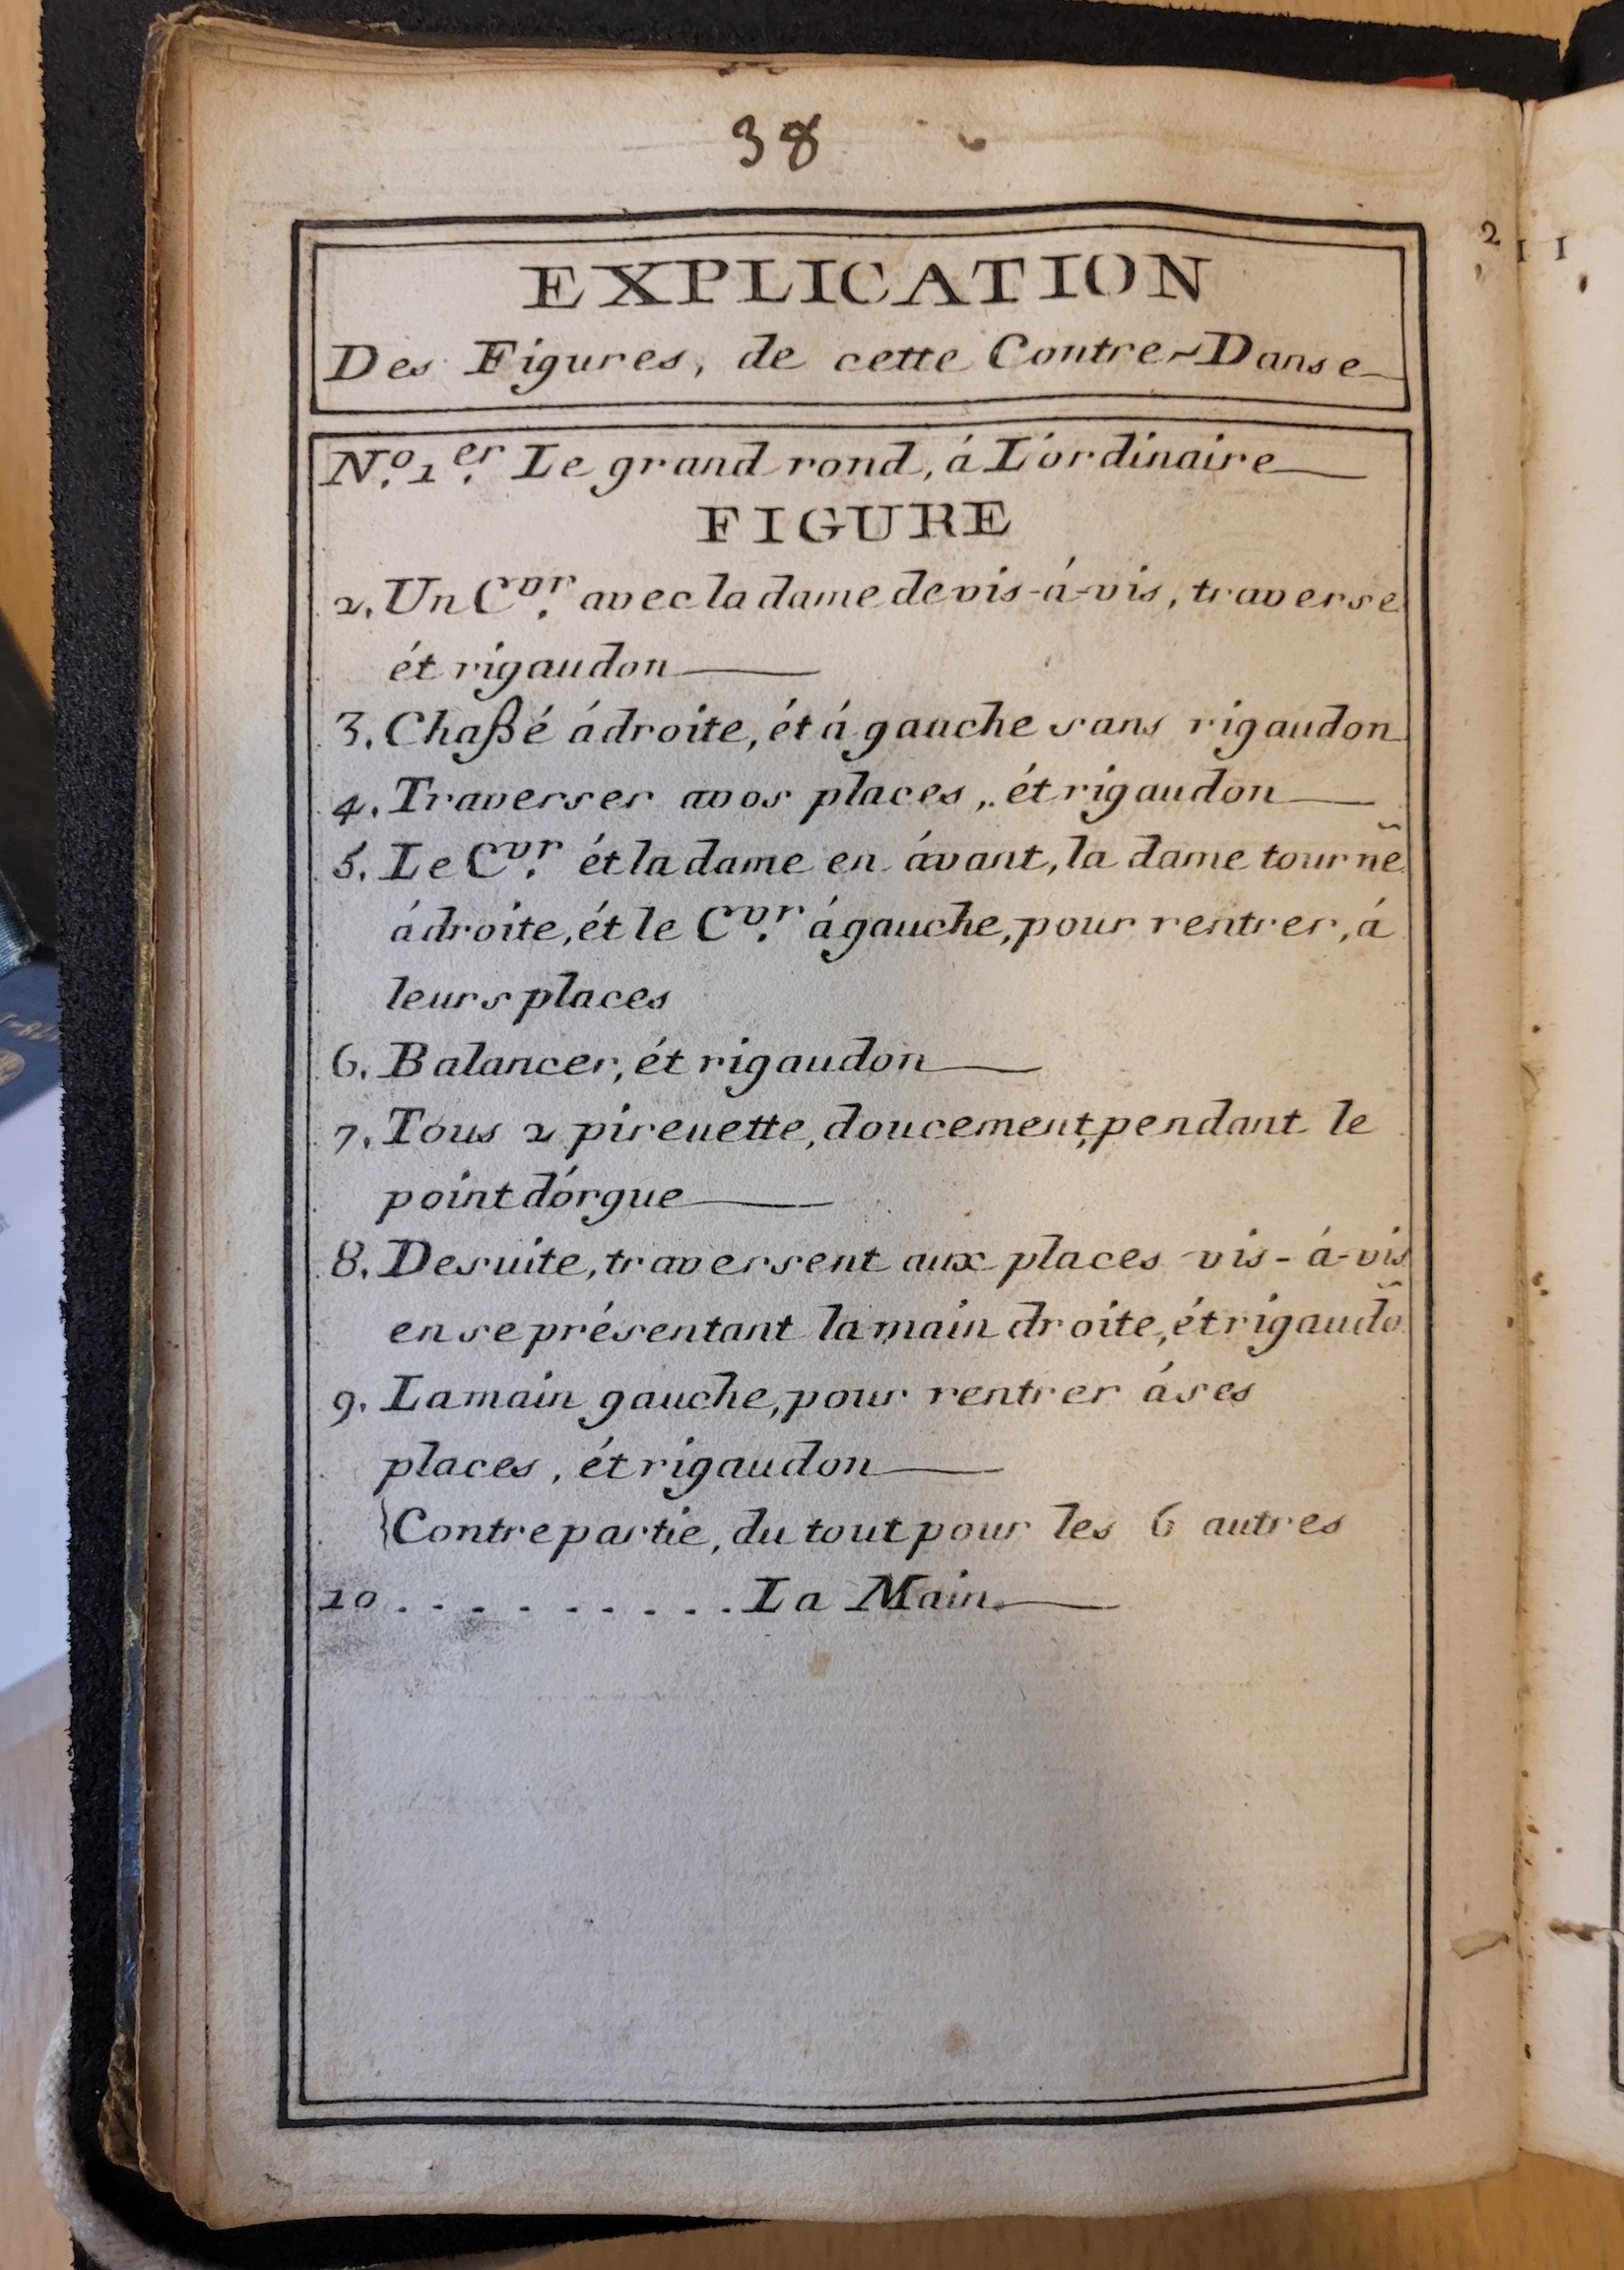 38
EXPLICATION
Des Figures, de cette Contre-Danse
N.º 1.er Le grand rond, á L'ordinaire
FIGURE
2. Un C.vr avec la dame de vis-á-vis, traverse
ét rigaudon
3. Chaßé á droite, ét á gauche sans rigaudon
4. Traverser a vos places, ét rigaudon
5. Le C.vr ét la dame en ávant, la dame tourñe
á droite, ét le C.vr á gauche, pour rentrer, á
leurs places
6. Balancer, ét rigaudon
7. Tous 2 pireuette, doucement, pendant le
point d'órgue
8. De suite, traversent aux places vis-á-vis
en se présentant la main droite, ét rigaudõ
9. La main gauche, pour rentrer á ses
places, ét rigaudon
}Contre partie, du tout pour les 6 autres
10 . . . . . . . . . . La Main
2
1 1